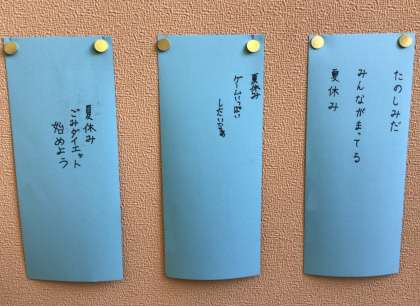 たのしみだ
みんながまってる
夏休み
夏休み
ゲームいっぱい
したいなあ
夏休み
ごみダイエット
始めよう